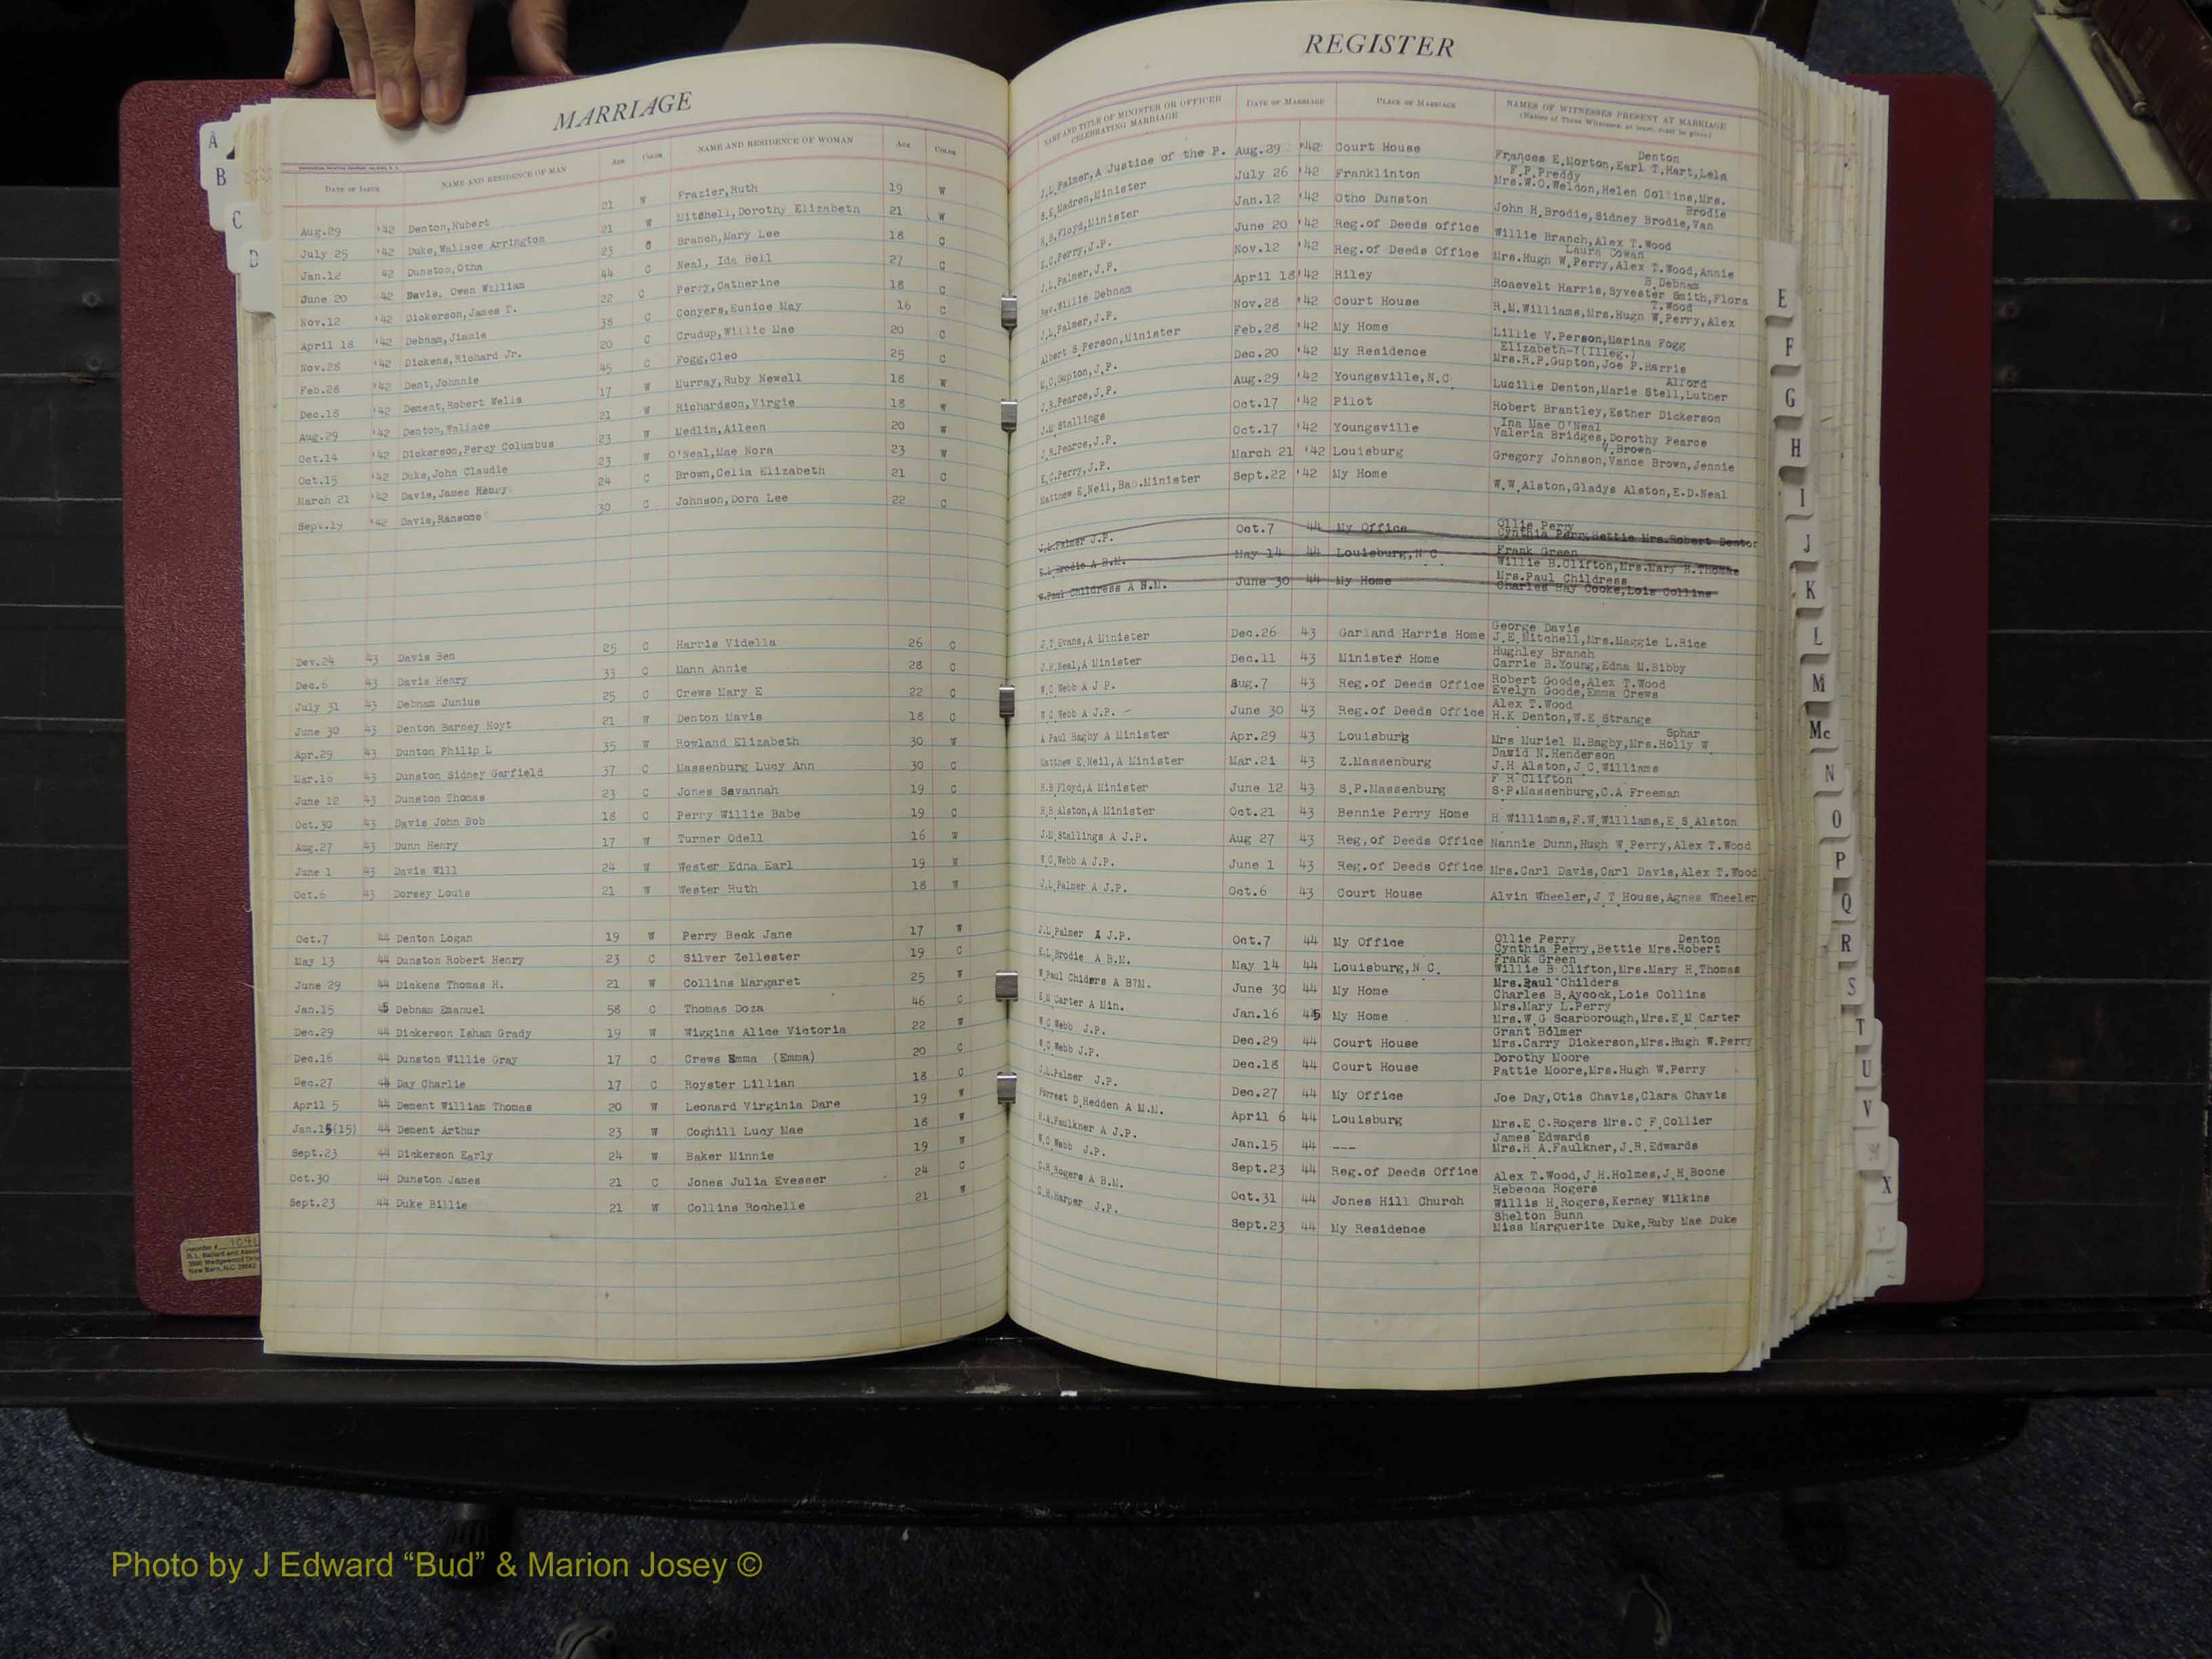 MARRIAGE
DATE OF ISSUE NAME AND RESIDENCE OF MAN AGE COLOR NAME AND RESIDENCE OF WOMAN AGE COLOR
Aug.29 '42 Denton,Hubert 21 W Frazier,Ruth 19 W
July 25 '42 Duke,Wallace Arrington 21 W Mitchell,Dorothy Elizabeth 21 W
Jan.12 42 Dunston,Otha 23 C Branch,Mary Lee 18 C
June 20 42 Davis, Owen William 44 C Neal, Ida Bell 27 C
Nov.12 '42 Dickerson,James T. 22 C Perry,Catherine 18 C
April 18 '42 Debnam,Jimmie 38 C Conyers,Eunice May 16 C
Nov.28 '42 Dickens,Richard Jr. 20 C Crudup,Willie Mae 20 C
Feb.28 '42 Dent,Johnnie 45 C Fogg,Cleo 25 C
Dec.18 '42 Dement,Robert Wells 17 W Murray,Ruby Newell 18 W
Aug.29 '42 Denton,Wallace 21 W Richardson,Virgie 18 W
Oct.14 '42 Dickerson,Percy Columbus 23 W Medlin,Aileen 20 W
Oct.15 '42 Duke,John Claudie 23 W O'Neal,Mae Nora 23 W
March 21 '42 Davis,James Henry 24 C Brown,Celia Elizabeth 21 C
Sept.19 '42 Davis,Ransome 30 C Johnson,Dora Lee 22 C
Dev.24 43 Davis Ben 25 C Harris Vidella 26 C
Dec.6 43 Davis Henry 33 C Mann Annie 28 C
July 31 43 Debnam Junius 25 C Crews Mary E 22 C
June 30 43 Denton Barney Hoyt 21 W Denton Mavis 18 C
Apr.29 43 Dunton Philip L 35 W Rowland Elizabeth 30 W
Mar.16 43 Dunston Sidney Garfield 37 C Massenburg Lucy Ann 30 C
June 12 43 Dunston Thomas 23 C Jones Savannah 19 C
Oct.30 43 Davis John Bob 18 C Perry Willie Babe 19 C
Aug.27 43 Dunn Henry 17 W Turner Odell 16 W
June 1 43 Davis Will 24 W Wester Edna Earl 19 W
Oct.6 43 Dorsey Louis 21 W Wester Ruth 18 W
Oct.7 44 Denton Logan 19 W Perry Beck Jane 17 W
May 13 44 Dunston Robert Henry 23 C Silver Zellester 19 C
June 29 44 Dickens Thomas H. 21 W Collins Margaret 25 W
Jan.15 45 Debnam Emanuel 58 C Thomas Doza 46 C
Dec.29 44 Dickerson Isham Grady 19 W Wiggins Alice Victoria 22 W
Dec.16 44 Dunston Willie Gray 17 C Crews Emma (Emma) 20 C
Dec.27 44 Day Charlie 17 C Royster Lillian 18 C
April 5 44 Dement William Thomas 20 W Leonard Virginia Dare 19 W
Jan.15(15) 44 Dement Arthur 23 W Coghill Lucy Mae 18 W
Sept.23 44 Dickerson Early 24 W Baker Minnie 19 W
Oct.30 44 Dunston James 21 C Jones Julia Evesser 24 C
Sept.23 44 Duke Billie 21 W Collins Rochelle 21 W
REGISTER
NAME AND TITLE OF MINISTER OR OFFICER CELEBRATING MARRIAGE DATE OF MARRIAGE PLACE OF MARRIAGE NAMES OF WITNESSES PRESENT AT MARRIAGE
(Names of Three Witnesses, at least, must be given)
Denton
J.L.Palmer,A Justice of the P. Aug.29 '42 Court House Frances E.Morton,Earl T.Hart,Lela
F.P.Preddy
S.E.Madren,Minister July 26 '42 Franklinton Mrs.W.O.Weldon,Helen Collins,Mrs.
Brodie
H.B.Floyd,Minister Jan.12 '42 Otho Dunston John H.Brodie,Sidney Brodie,Van
E.C.Perry,J.P. June 20 '42 Reg.of Deeds office Willie Branch,Alex T.Wood
Laura Cowan
J.L.Palmer,J.P. Nov.12 '42 Reg.of Deeds Office Mrs.Hugh W.Perry,Alex T.Wood,Annie
B.Debnam
Rev.Willie Debnam April 18 '42 Riley Roaevelt Harris,Syvester Smith,Flora
T.Wood
J.L.Palmer,J.P. Nov.28 '42 Court House R.M.Williams,Mrs.Hugh W.Perry,Alex
Albert S Person,Minister Feb.28 '42 My Home Lillie V.Person,Marina Fogg
Elizabeth-?(Illeg.)
M.C.Gupton,J.P. Dec.20 '42 My Residence Mrs.R.P.Gupton,Joe P.Harris
Alford
J.R.Pearce,J.P. Aug.29 '42 Youngsville,N.C. Lucille Denton,Marie Stell,Luther
J.M Stallings Oct.17 '42 Pilot Robert Brantley,Esther Dickerson
Ina Mae O'Neal
J.R.Pearce,J.P. Oct.17 '42 Youngsville Valeria Bridges,Dorothy Pearce
V.Brown
E.C.Perry,J.P. March 21 '42 Louisburg Gregory Johnson,Vance Brown,Jennie
Matthew E.Neil,Bap.Minister Sept.22 '42 My Home W.W.Alston,Gladys Alston,E.D.Neal
Ollie Perry
J.L.Palmer J.P. Oct.7 44 My Office Cynthia Perry,Bettie Mrs.Robert Denton
Frank Green
E.L.Brodie A B.M. May 14 44 Louisburg,N C Willie B.Clifton,Mrs.Mary H.Thomas
Mrs.Paul Childress
W.Paul Childress A B.M. June 30 44 My Home Charles Bay Cooke,Lois Collins
George Davis
J.T.Evans,A Minister Dec.26 43 Garland Harris Home J.E.Mitchell,Mrs.Maggie L.Rice
Hughley Branch
J.E.Neal,A Minister Dec.11 43 Minister Home Carrie B.Young,Edna M.Bibby
Robert Goode,Alex T.Wood
W.C.Webb A J P. Aug.7 43 Reg.of Deeds Office Evelyn Goode,Emma Crews
Alex T.Wood
W.C Webb A J.P. June 30 43 Reg.of Deeds Office H.K Denton,W.E Strange
Sphar
A Paul Bagby A Minister Apr.29 43 Louisburg Mrs Muriel M.Bagby,Mrs.Holly W
David N.Henderson
Matthew E.Neil,A Minister Mar.21 43 Z.Massenburg J.H Alston,J.C.Williams
F H Clifton
H.B Floyd,A Minister June 12 43 S.P.Massenburg S.P.Massenburg,C.A Freeman
H.H Alston,A Minister Oct.21 43 Bennie Perry Home H Williams,F.W.Williams,E S.Alston
J.M.Stallings A J.P. Aug 27 43 Reg,of Deeds Office Nannie Dunn,Hugh W Perry,Alex T.Wood
W.C.Webb A J.P. June 1 43 Reg.of Deeds Office Mrs.Carl Davis,Carl Davis,Alex T.Wood
J.L.Palmer A J.P. Oct.6 43 Court House Alvin Wheeler,J T House,Agnes Wheeler
Ollie Perry Denton
J.L.Palmer A J.P. Oct.7 44 My Office Cynthia Perry,Bettie Mrs.Robert
Frank Green
E.L.Brodie A B.M. May 14 44 Louisburg,N C. Willie B Clifton,Mrs.Mary H.Thomas
Mrs.Paul Childers
W.Paul Chiders A B?M. June 30 44 My Home Charles B.Aycock,Lois Collins
Mrs.Mary L.Perry
E.M Carter A Min. Jan.16 445 My Home Mrs.W.G Scarborough,Mrs.E M Carter
Grant Bolmer
W.C.Webb J.P. Dec.29 44 Court House Mrs.Carry Dickerson,Mrs.Hugh W.Perry
Dorothy Moore
W.C Webb J.P. Dec.18 44 Court House Pattie Moore,Mrs.Hugh W.Perry
J.L.Palmer J.P. Dec.27 44 My Office Joe Day,Otis Chavis,Clara Chavis
Forrest D.Hedden A M.M. April 6 44 Louisburg Mrs.E C.Rogers Mrs.C F Collier
James Edwards
H.A.Faulkner A J.P. Jan.15 44 --- Mrs.H A.Faulkner,J.R.Edwards
W.C Webb J.P. Sept.23 44 Reg.of Deeds Office Alex T.Wood,J H.Holmes,J.H.Boone
Rebecca Rogers
C.H.Rogers A B.M. Oct.31 44 Jones Hill Church Willis H.Rogers,Kerney Wilkins
Shelton Bunn
C.H.Harper J.P. Sept.23 44 My Residence Miss Marguerite Duke,Ruby Mae Duke
A
B
C
D
E
F
G
H
I
J
K
L
M
Mc
N
O
P
Q
R
S
T
U
V
W
X
Y
Z
New Bern, N.C. 28562
Photo by J Edward “Bud” & Marion Josey ©